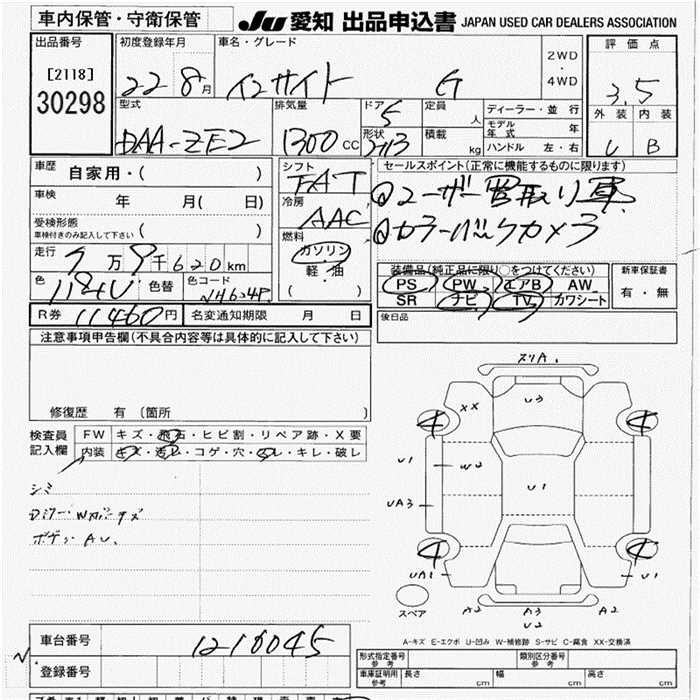 車内保管・守衛保管
JU 愛知 出品申込書 JAPAN USED CAR DEALERS ASSOCIATION
出品番号
[2118]
30298
初度登録年月
22 8月
車名・グレード
インサイト G
2WD
・
4WD
評価点
3.5
外装 内装
B
型式
DAA-ZE2
排気量
1300cc
ドア
5
形状
定員
人
積載
kg
ディーラー・並行
モデル年式
年
ハンドル 左・右
車歴 自家用・( )
車検 年 月( 日)
受検形態
車検付きのみ記入して下さい ( )
走行
万9千620km
色
色替
色コード
NH624P
シフト
FAT
冷房
AAC
燃料
ガソリン
軽・油
( )
セールスポイント(正常に機能するものに限ります)
①ユーザー買取り車
②カラーバックカメラ
装備品(純正品に限り○をつけてください)
PS PW エアB AW
SR ナビ TV カワシート
新車保証書
有・無
後日品
R券 11460円
名変通知期限 月 日
注意事項申告欄(不具合内容等は具体的に記入して下さい)
修復歴 有 (箇所 )
検査員
記入欄
FW キズ・飛石・ヒビ割・リペア跡・X要
内装 キズ・汚レ・コゲ・穴・スレ・キレ・破レ
シミ
Dミラー・Wカバーキズ
ボデーAU.
スリA.
XX
U3
4
4
U1
W2
U1
UA3
4
4
UA1
U1
スペア
A2
A3
A2
U2
A-キズ E-エクボ U-凹み W-補修跡 S-サビ C-腐食 XX-交換済
車台番号 1210045
登録番号
形式指定番号
参考
類別区分番号
参考
車庫証明用
参考
長さ cm
幅 cm
高さ cm